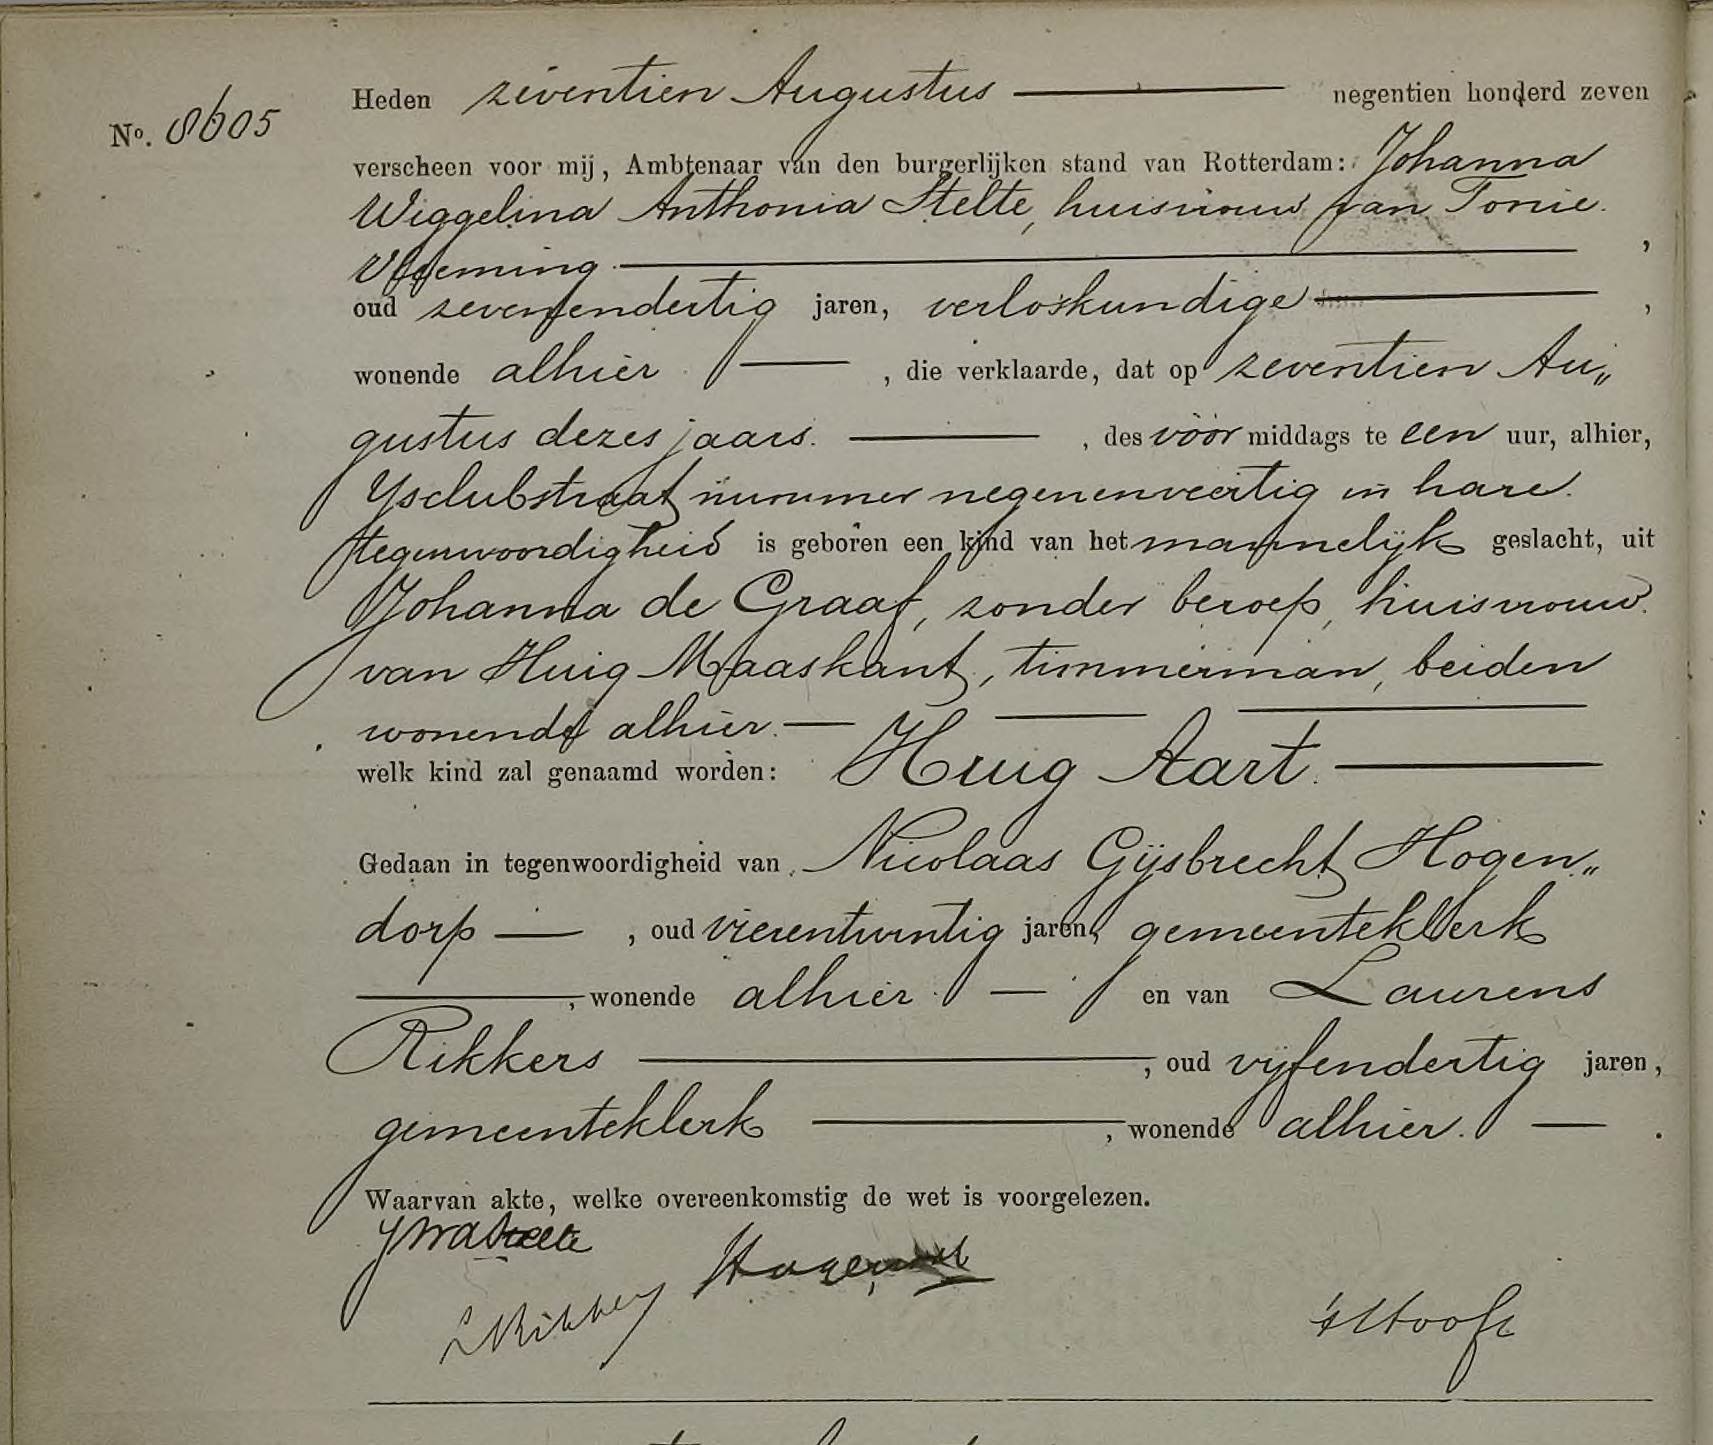 Heden zeventien Augustus — negentien honderd zeven
No. 8605
verscheen voor mij, Ambtenaar van den burgerlijken stand van Rotterdam: Johanna
Wiggelina Anthonia Stelte, huisvrouw van Tonie
Vleeming —,
oud zevenendertig jaren, verloskundige —,
wonende alhier —, die verklaarde, dat op zeventien Au„
gustus dezes jaars. —, des vóór middags te een uur, alhier,
Ysclubstraat nummer negenenveertig in hare
tegenwoordigheid is geboren een kind van het mannelijk geslacht, uit
Johanna de Graaf, zonder beroep, huisvrouw
van Huig Maaskant, timmerman, beiden
wonende alhier. — — —
welk kind zal genaamd worden: Huig Aart. —
Gedaan in tegenwoordigheid van Nicolaas Gijsbrecht Hogen„
dorp —, oud vierentwintig jaren, gemeenteklerk
—, wonende alhier — en van Laurens
Rikkers —, oud vijfendertig jaren,
gemeenteklerk —, wonende alhier. — .
Waarvan akte, welke overeenkomstig de wet is voorgelezen.
JWAStelte
Hogendorp
LRikkers
's Hooft